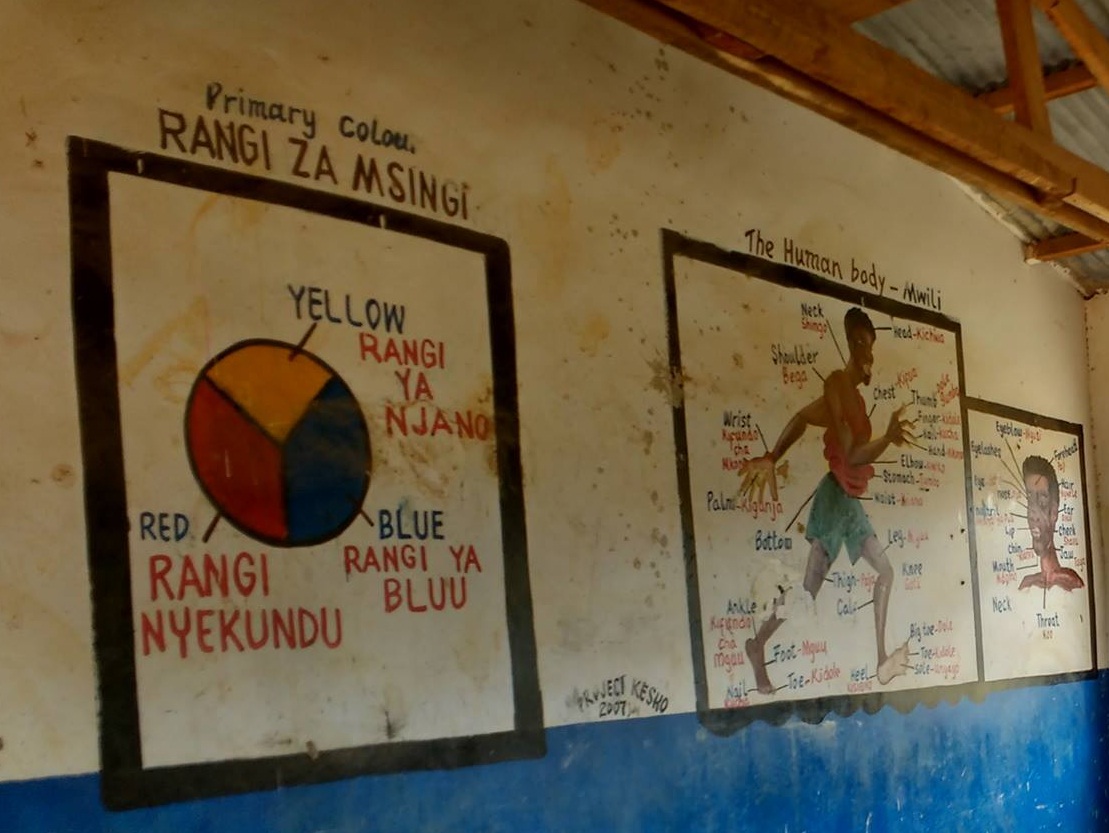 Primary Colou.
RANGI ZA MSINGI
YELLOW
RANGI
YA
NJANO
RED
RANGI
NYEKUNDU
BLUE
RANGI YA
BLUU
PROJECT KESHO
2007
The Human body - Mwili
Neck
Shingo
Head-Kichwa
Shoulder
Bega
Chest-Kifua
Thumb
Wrist
Kifundo
cha
Mkono
Finger-Kidole
Nail-Kucha
Hand-Mkono
Elbow-Kiwiko
Stomach-Tumbo
Waist-Kiuno
Palm-Kiganja
Bottom
Leg-Mguu
Thigh-Paja
Knee
Goti
Calf
Ankle
Kifundo
cha
mguu
Foot-Mguu
Toe-Kidole
Nail
Kucha
Heel
Kisigino
Big toe-Dole
Toe-Kidole
Sole-unyayo
Eyebrow
Eyelashes
Forehead
Hair
Ear
Cheek
Jaw
Lip
Chin
Mouth
Mdomo
Neck
Throat
Koo